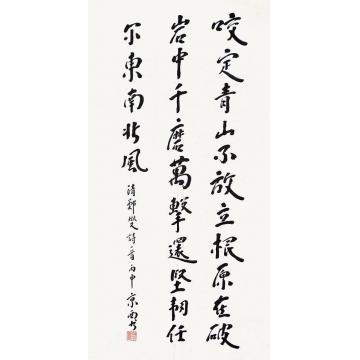 咬定青山不放立根原在破
岩中千磨萬擊還堅韌任
尔東南北風
清鄭燮詩一首丙申京書